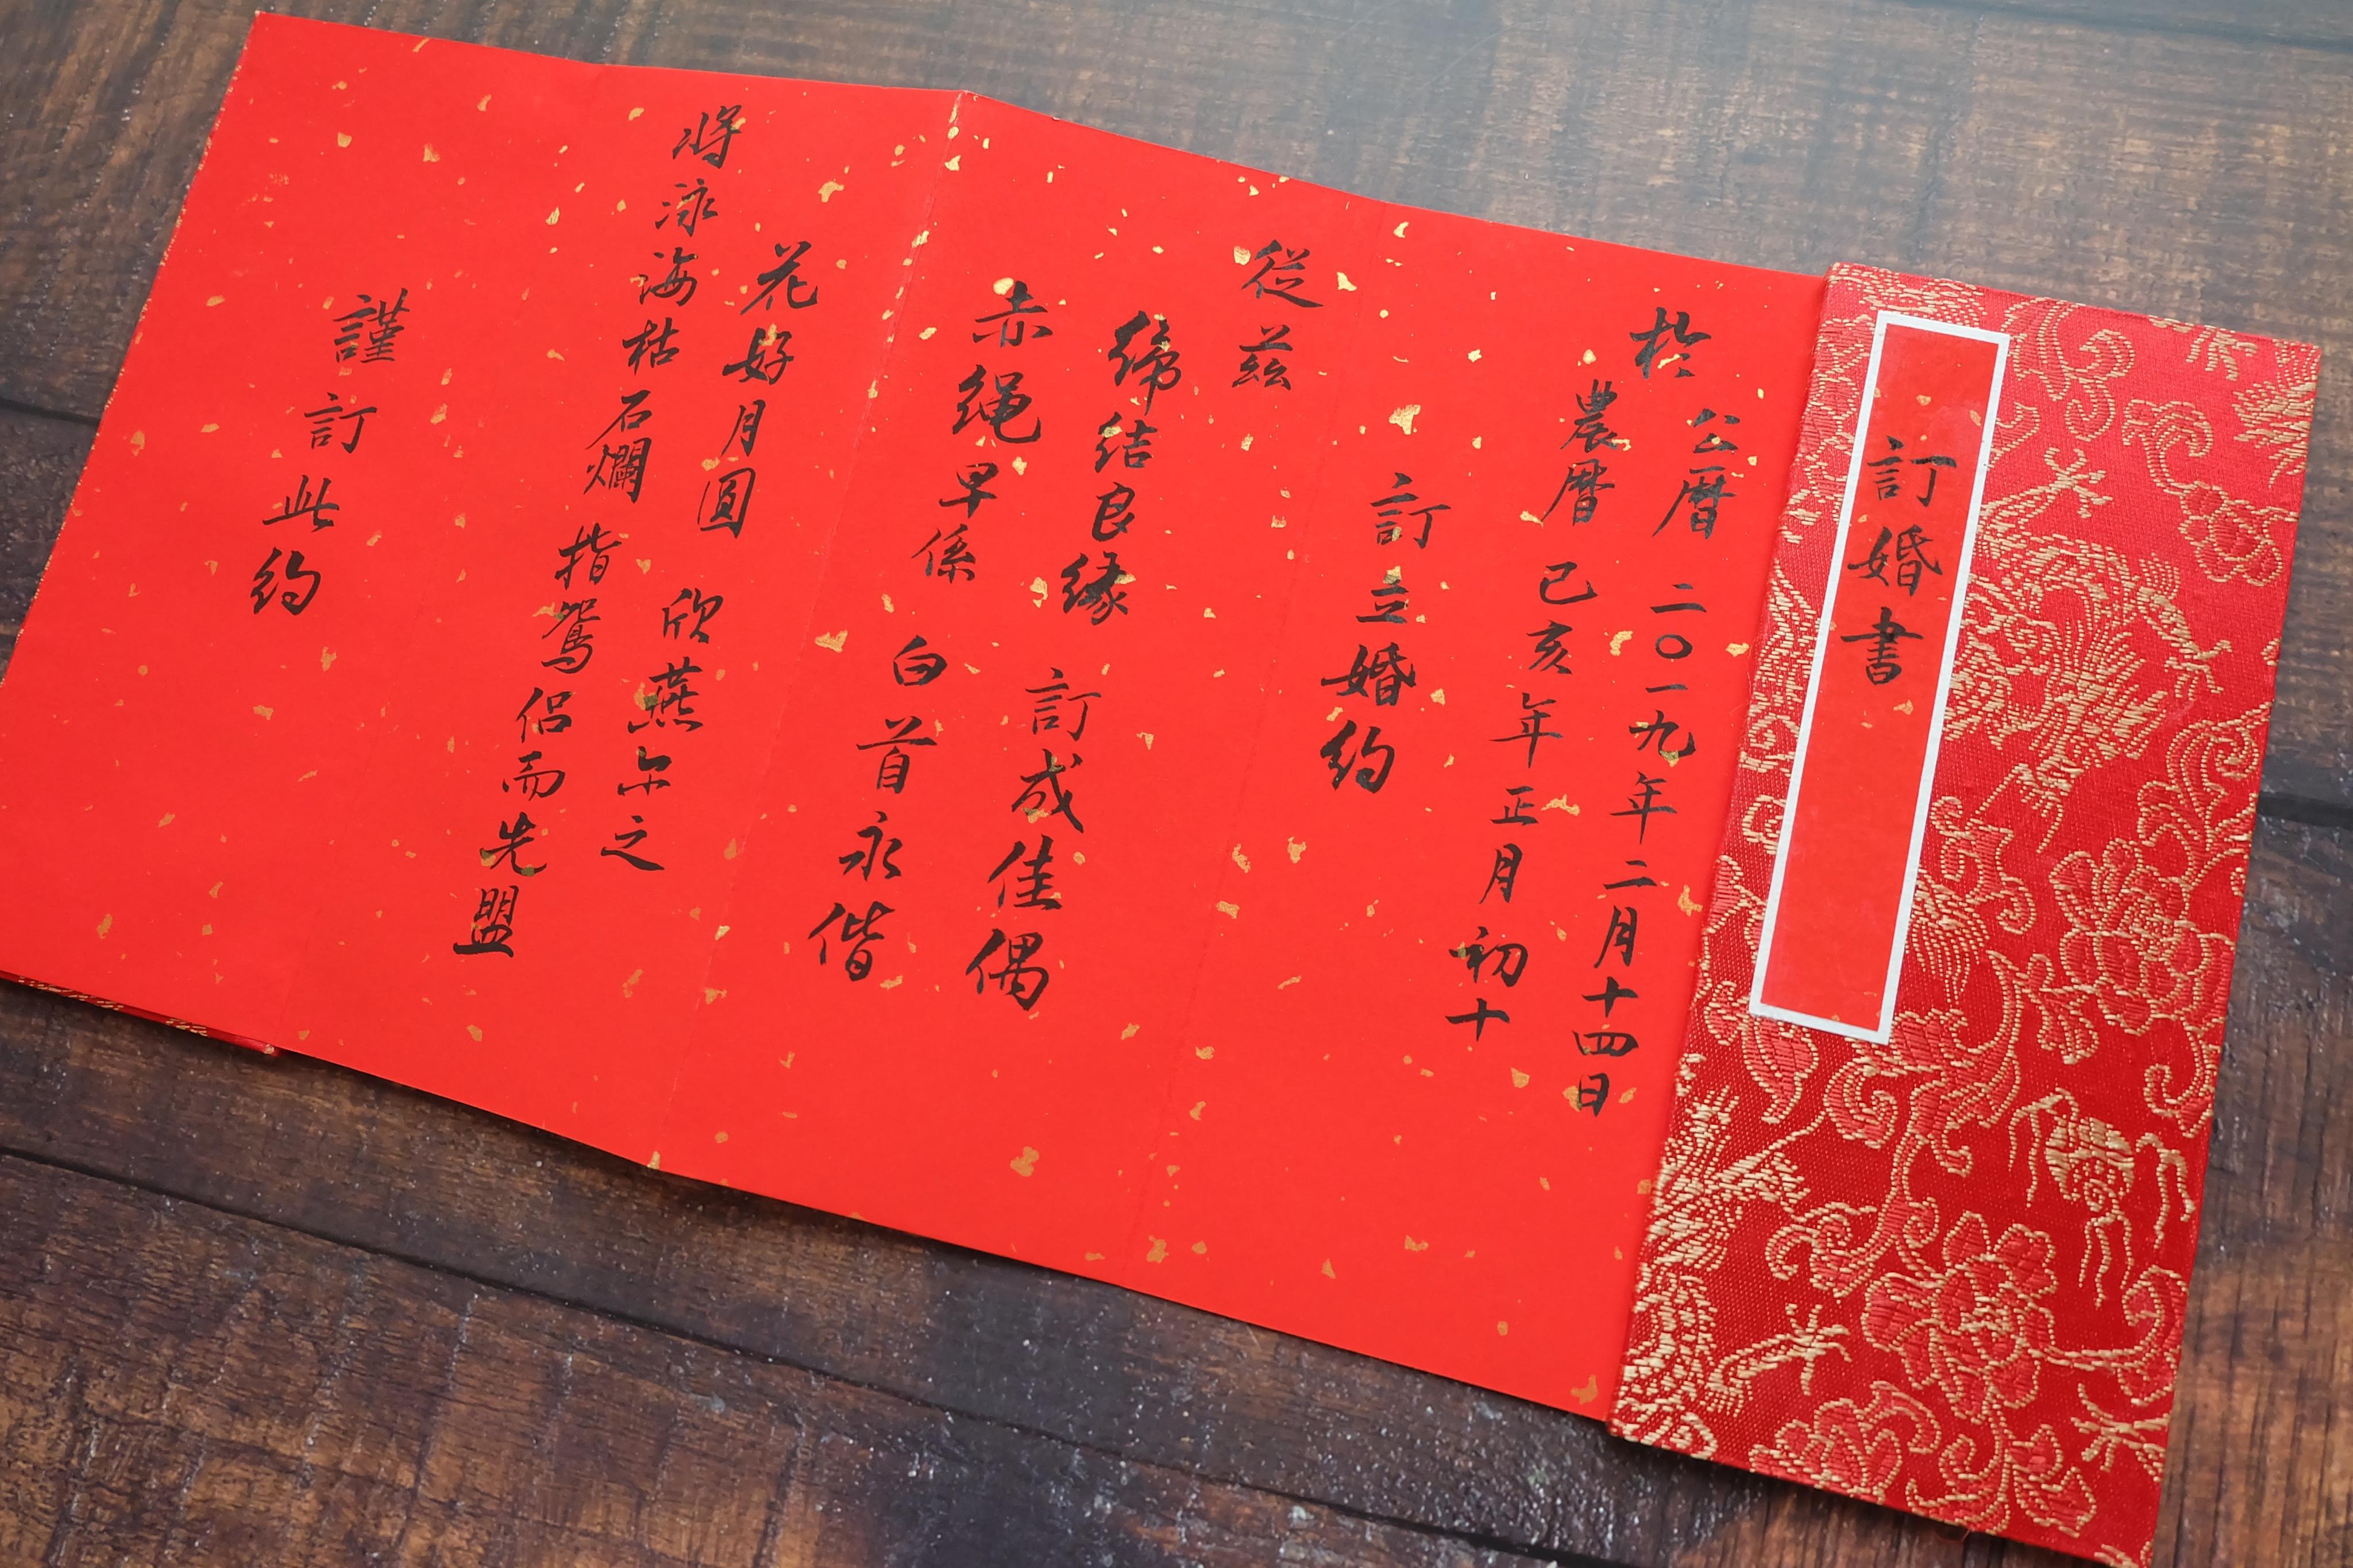 訂婚書
於
公曆 二〇一九年二月十四日
農曆 己亥年正月初十
訂立婚約
從茲
締結良緣 訂成佳偶
赤繩早係 白首永偕
花好月圓 欣燕尔之
将泳海枯石爛 指鴛侣而先盟
謹訂此約